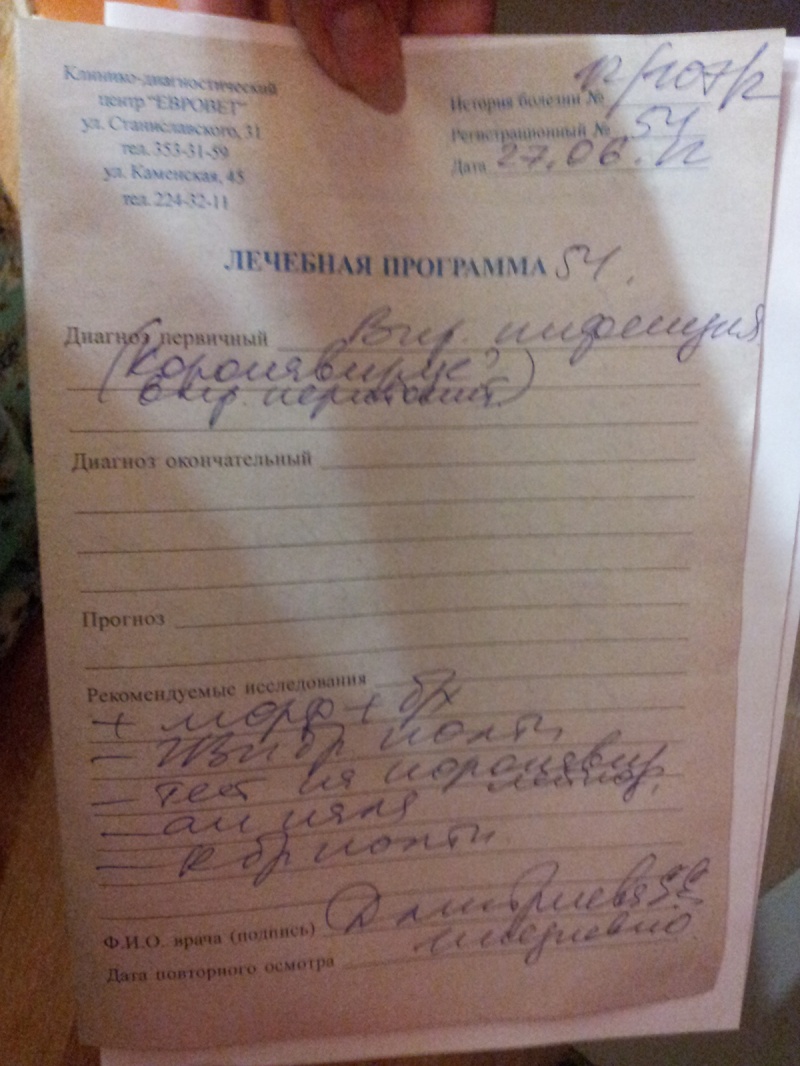 Клинико-диагностический
центр "ЕВРОВЕТ"
ул. Станиславского, 31
тел. 353-31-59
ул. Каменская, 45
тел. 224-32-11
История болезни №
Регистрационный № 54
Дата 27.06.12
ЛЕЧЕБНАЯ ПРОГРАММА 54.
Диагноз первичный Вир. инфекция
(Коронавирус?
вир. перитонит)
Диагноз окончательный
Прогноз
Рекомендуемые исследования
+ морф + б/х
- бр. полости
- тест на коронавир.
- ан. кала
- бр полости
Ф.И.О. врача (подпись) Дмитриева
Дата повторного осмотра ежедневно